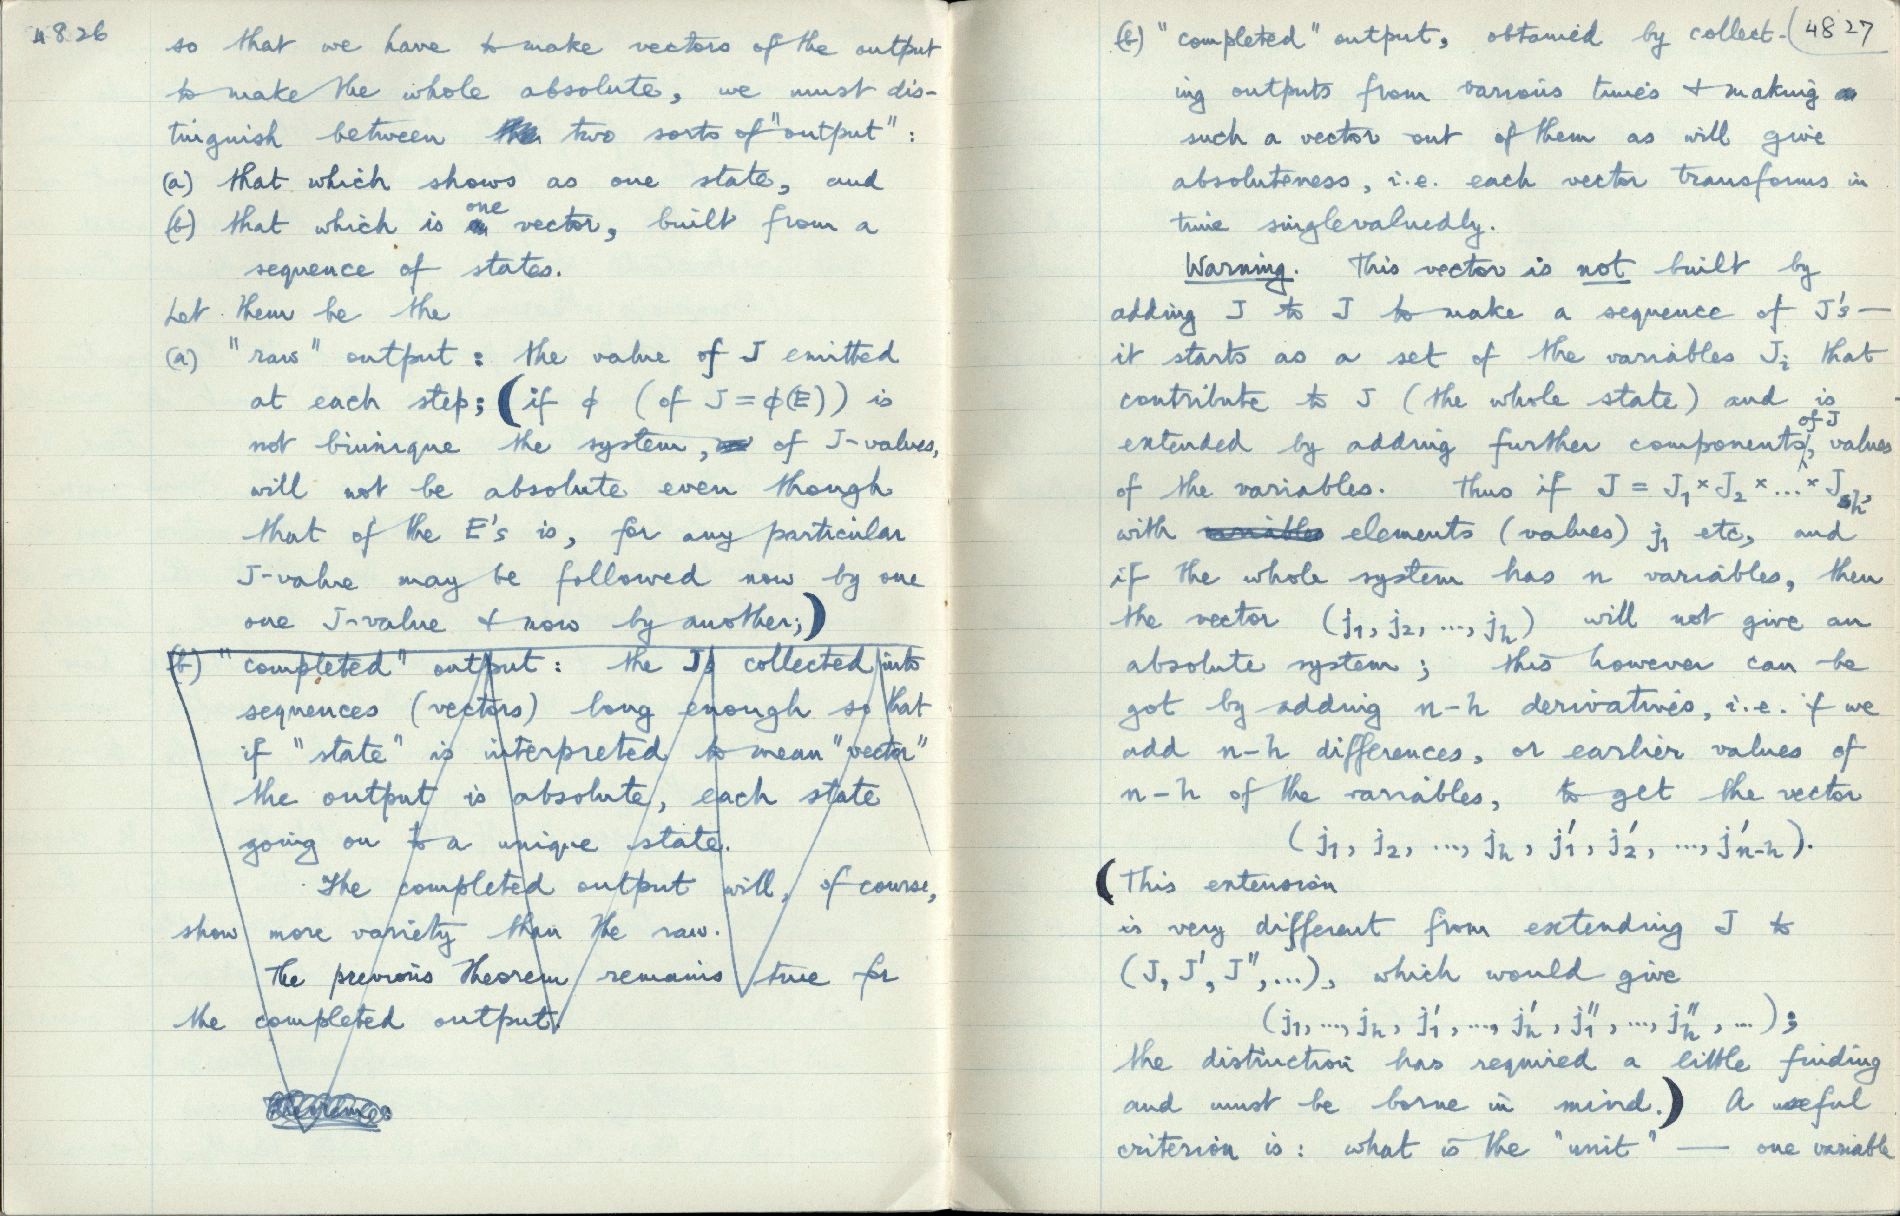 4826
so that we have to make vectors of the output
to make the whole absolute, we must dis-
tinguish between the two sorts of "output":
(a) that which shows as one state, and
(b) that which is one vector, built from a
sequence of states.
Let them be the
(a) "raw" output: the value of J emitted
at each step; (if φ (of J = φ(E)) is
not biunique the system, of J-values,
will not be absolute even though
that of the E's is, for any particular
J-value may be followed now by one
one J-value & now by another;)
(b) "completed" output: the Js collected into
sequences (vectors) long enough so that
if "state" is interpreted to mean "vector"
the output is absolute, each state
going on to a unique state.
The completed output will, of course,
show more variety than the raw.
The previous theorem remains true for
the completed output.
4827
(b) "completed" output, obtained by collect-
ing outputs from various times & making
such a vector out of them as will give
absoluteness, i.e. each vector transforms in
time singlevaluedly.
Warning. This vector is not built by
adding J to J to make a sequence of J's —
it starts as a set of the variables Ji that
contribute to J (the whole state) and is
extended by adding further components, of J values
of the variables. Thus if J = J₁ × J₂ × ... × Jh,
with variables elements (values) j₁ etc, and
if the whole system has n variables, then
the vector (j₁, j₂, ..., jh) will not give an
absolute system; this however can be
got by adding n-h derivatives, i.e. if we
add n-h differences, or earlier values of
n-h of the variables, to get the vector
(j₁, j₂, ..., jh, j₁', j₂', ..., j'n-h).
(This extension
is very different from extending J to
(J, J', J'', ...), which would give
(j₁, ..., jh, j₁', ..., jh', j₁'', ..., jh'', ...);
the distinction has required a little finding
and must be borne in mind.) A useful
criterion is: what is the "unit" — one variable